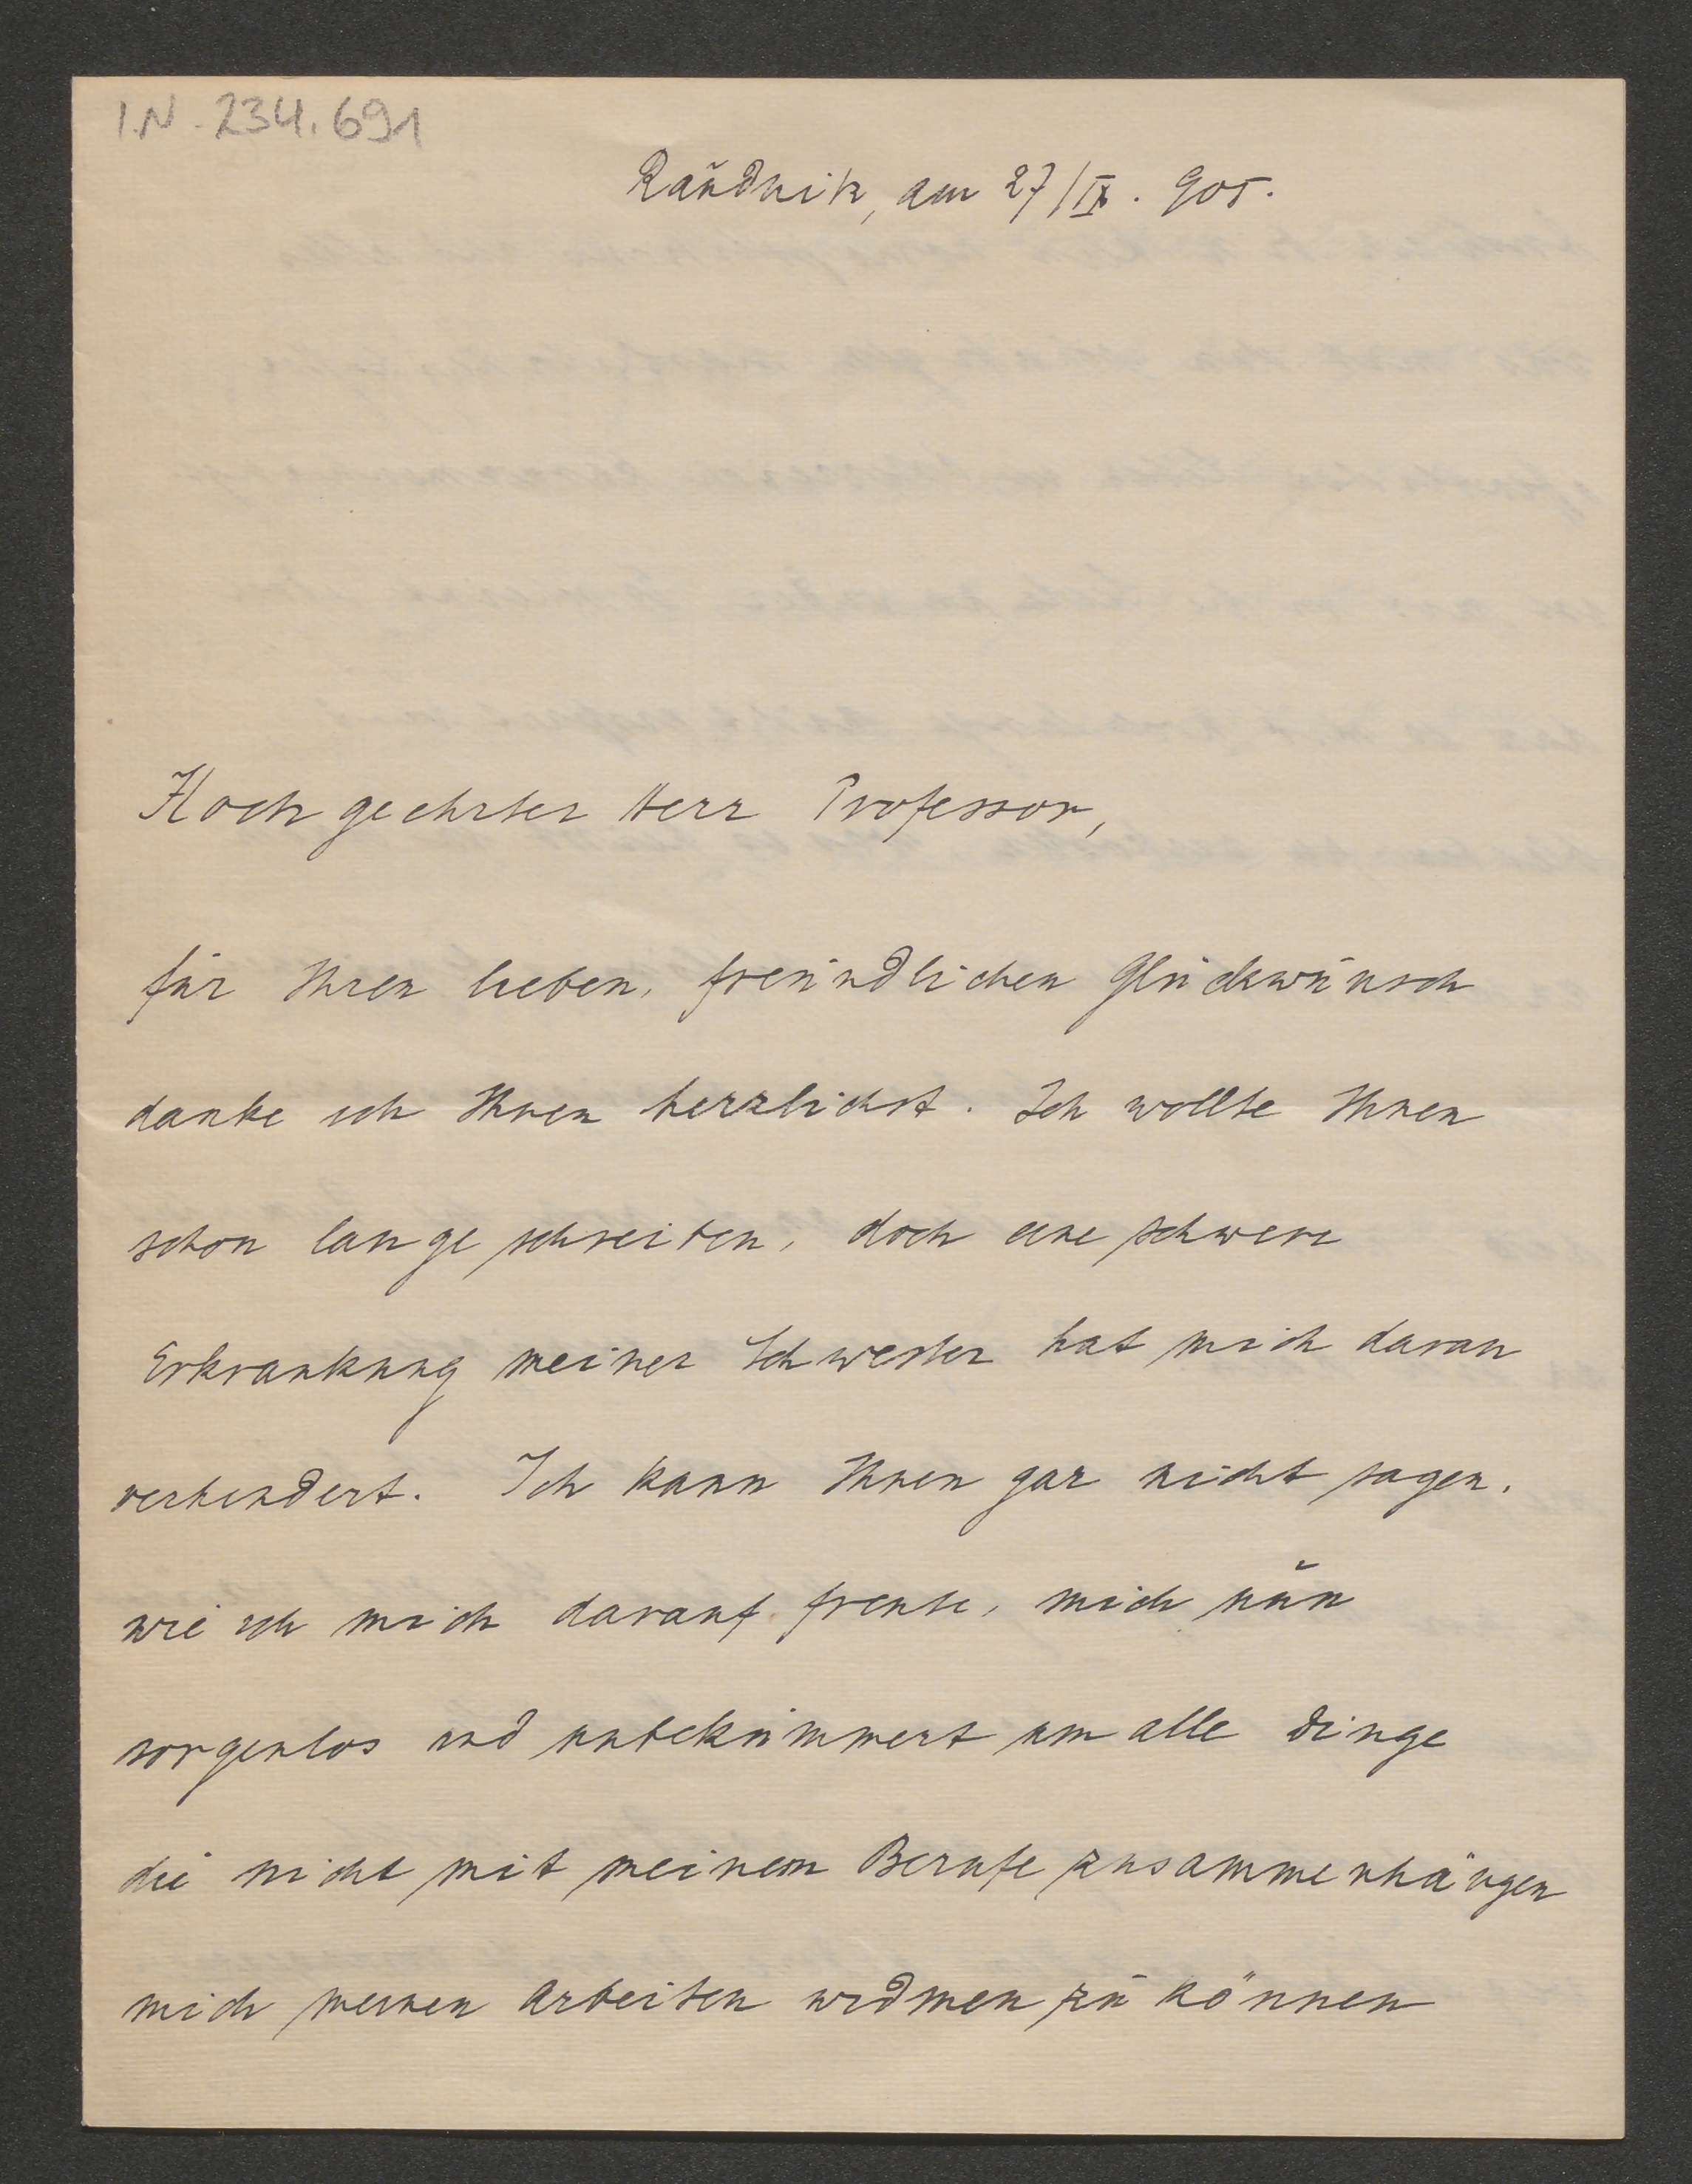 I.N. 234.691
Raudnik, am 27/IX. 905.
Hochgeehrter Herr Professor,
für Ihren lieben, freundlichen Glückwunsch
danke ich Ihnen herzlichst. Ich wollte Ihnen
schon lange schreiben, doch eine schwere
Erkrankung meiner Schwester hat mich daran
verhindert. Ich kann Ihnen gar nicht sagen,
wie ich mich darauf freute, mich nun
sorgenlos und unbekümmert um alle Dinge
die nicht mit meinem Berufe zusammenhängen
mich meinen Arbeiten widmen zu können